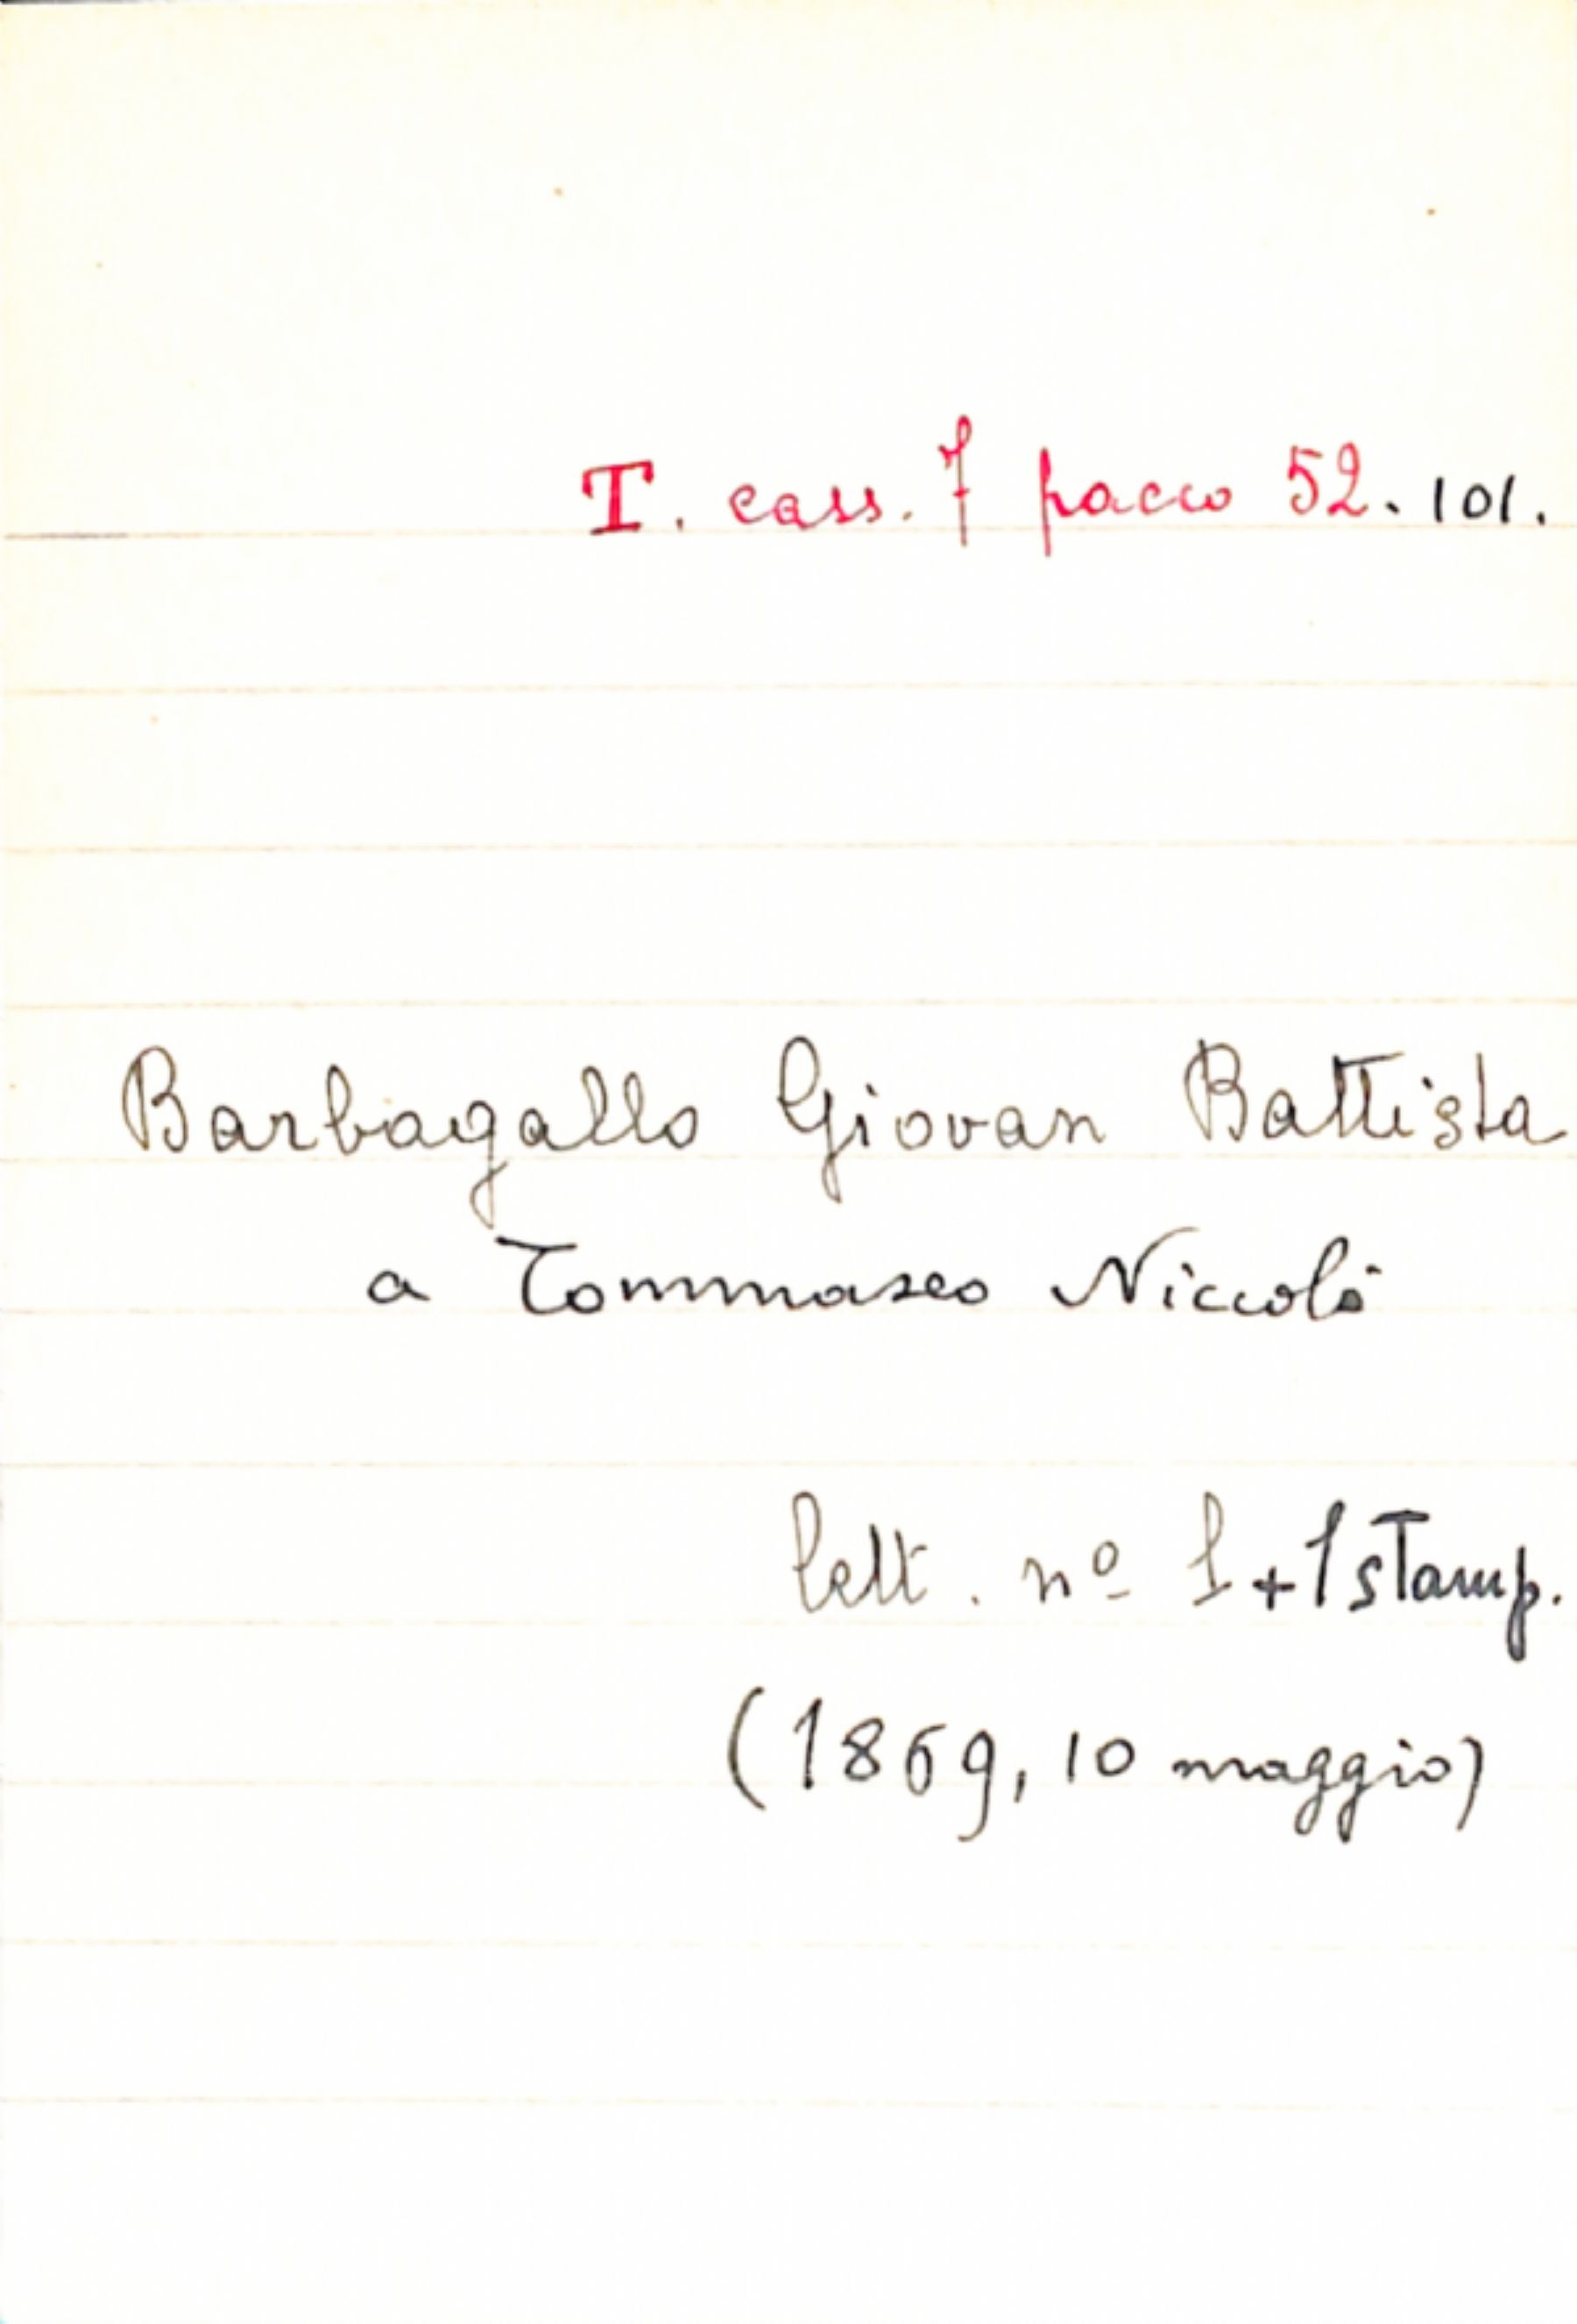 T. cass. 7 pacco 52. 101.
Barbagallo Giovan Battista
a Tommaseo Niccolò
lett. nº 1 + 1 stamp.
(1869, 10 maggio)